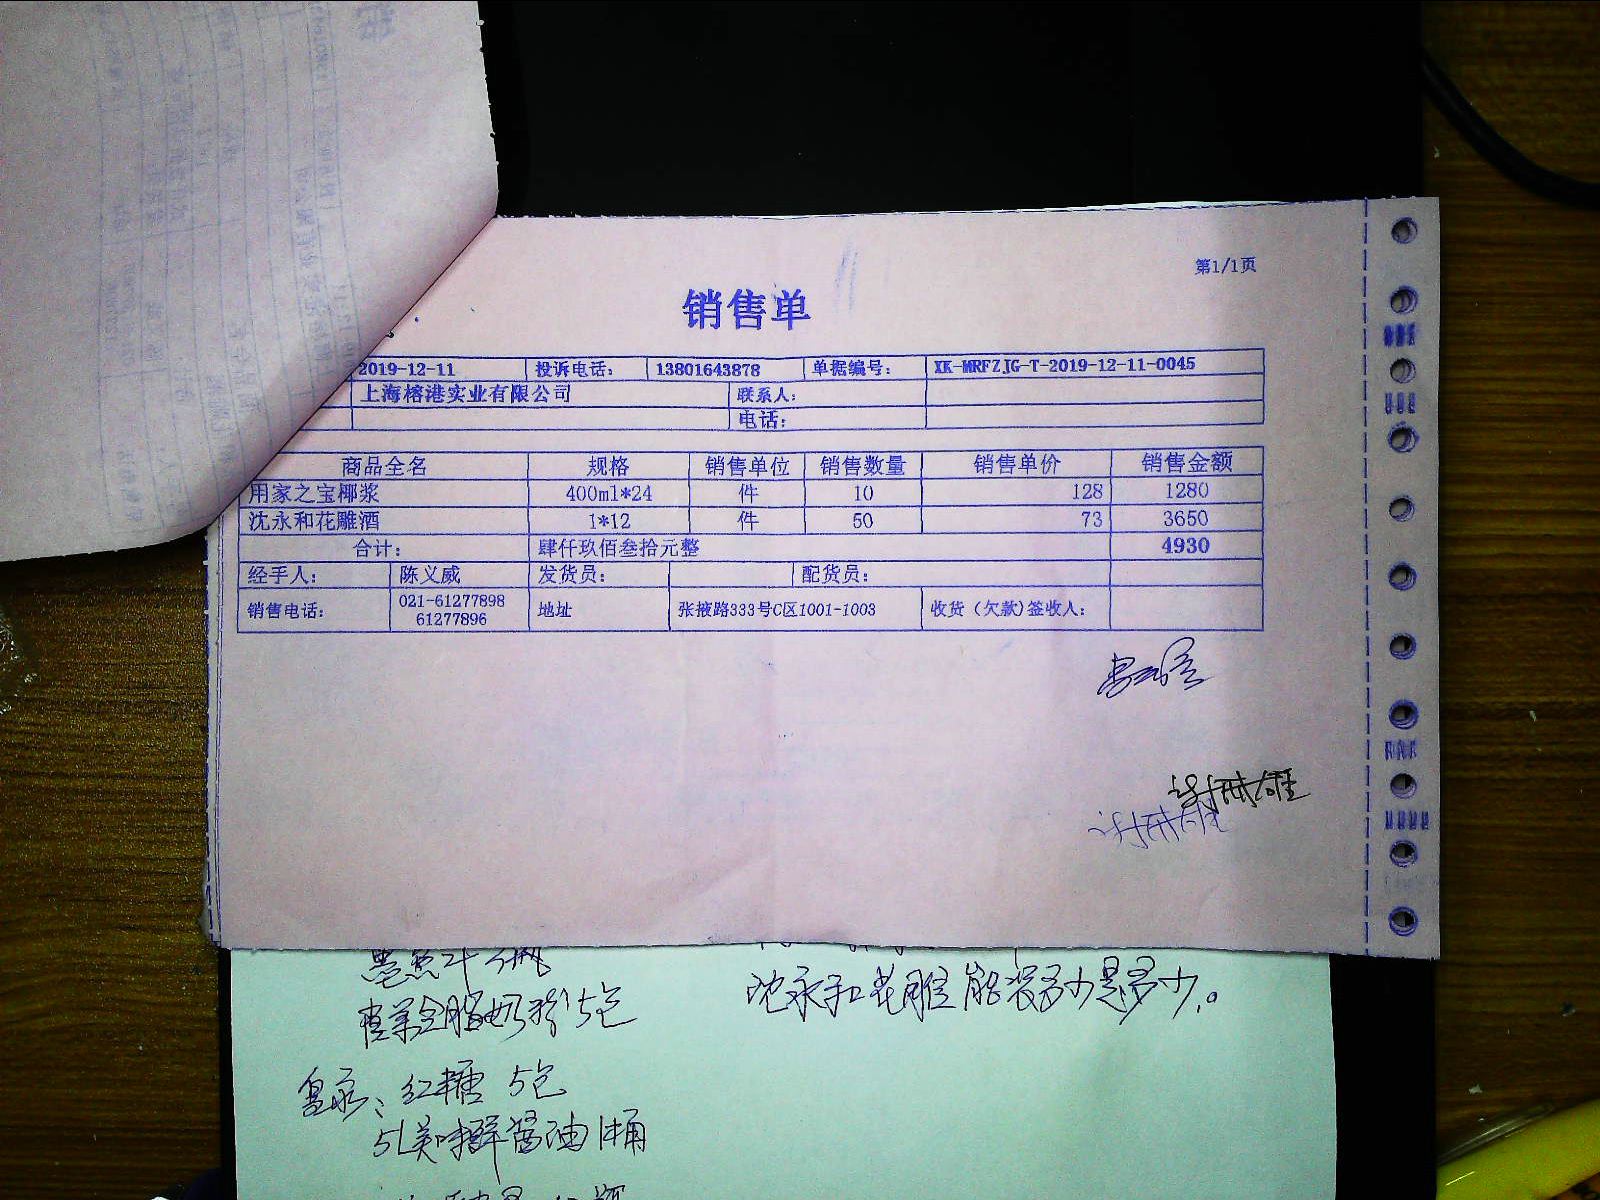 第1/1页
销售单
2019-12-11 投诉电话: 13801643878 单据编号: XK-MRFZJG-T-2019-12-11-0045
上海榕港实业有限公司 联系人:
电话:
商品全名 规格 销售单位 销售数量 销售单价 销售金额
用家之宝椰浆 400ml*24 件 10 128 1280
沈永和花雕酒 1*12 件 50 73 3650
合计: 肆仟玖佰叁拾元整 4930
经手人: 陈义威 发货员: 配货员:
销售电话: 021-61277898 61277896 地址 张掖路333号C区1001-1003 收货（欠款)签收人:
沈永和花雕能装多少是多少。
全脂奶粉 5包
红糖 5包
5L美味鲜酱油1桶